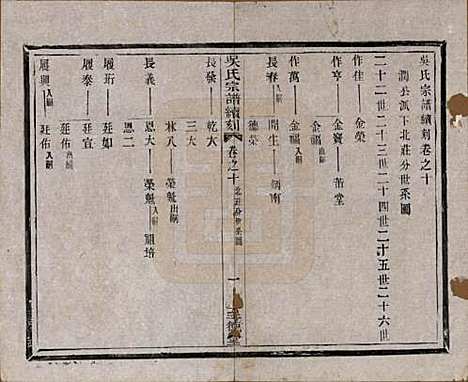 吳氏宗譜續刻卷之十
潤公派下北莊分世系圖
二十二世二十三世二十四世二十五世二十六世
作佳 金榮
作亨 金寶 茜堂
金福出嗣
作萬 金福入嗣
長春入嗣 開生 炳南
德榮
吳氏宗譜續刻 卷之十 北莊分世系圖 一
長發 乾大
三大
林八 榮魁出嗣
長義 恩大 榮魁入嗣 順培
恩二
履珩 廷如
履泰 廷 
廷佑出嗣
履興入嗣 廷佑入嗣